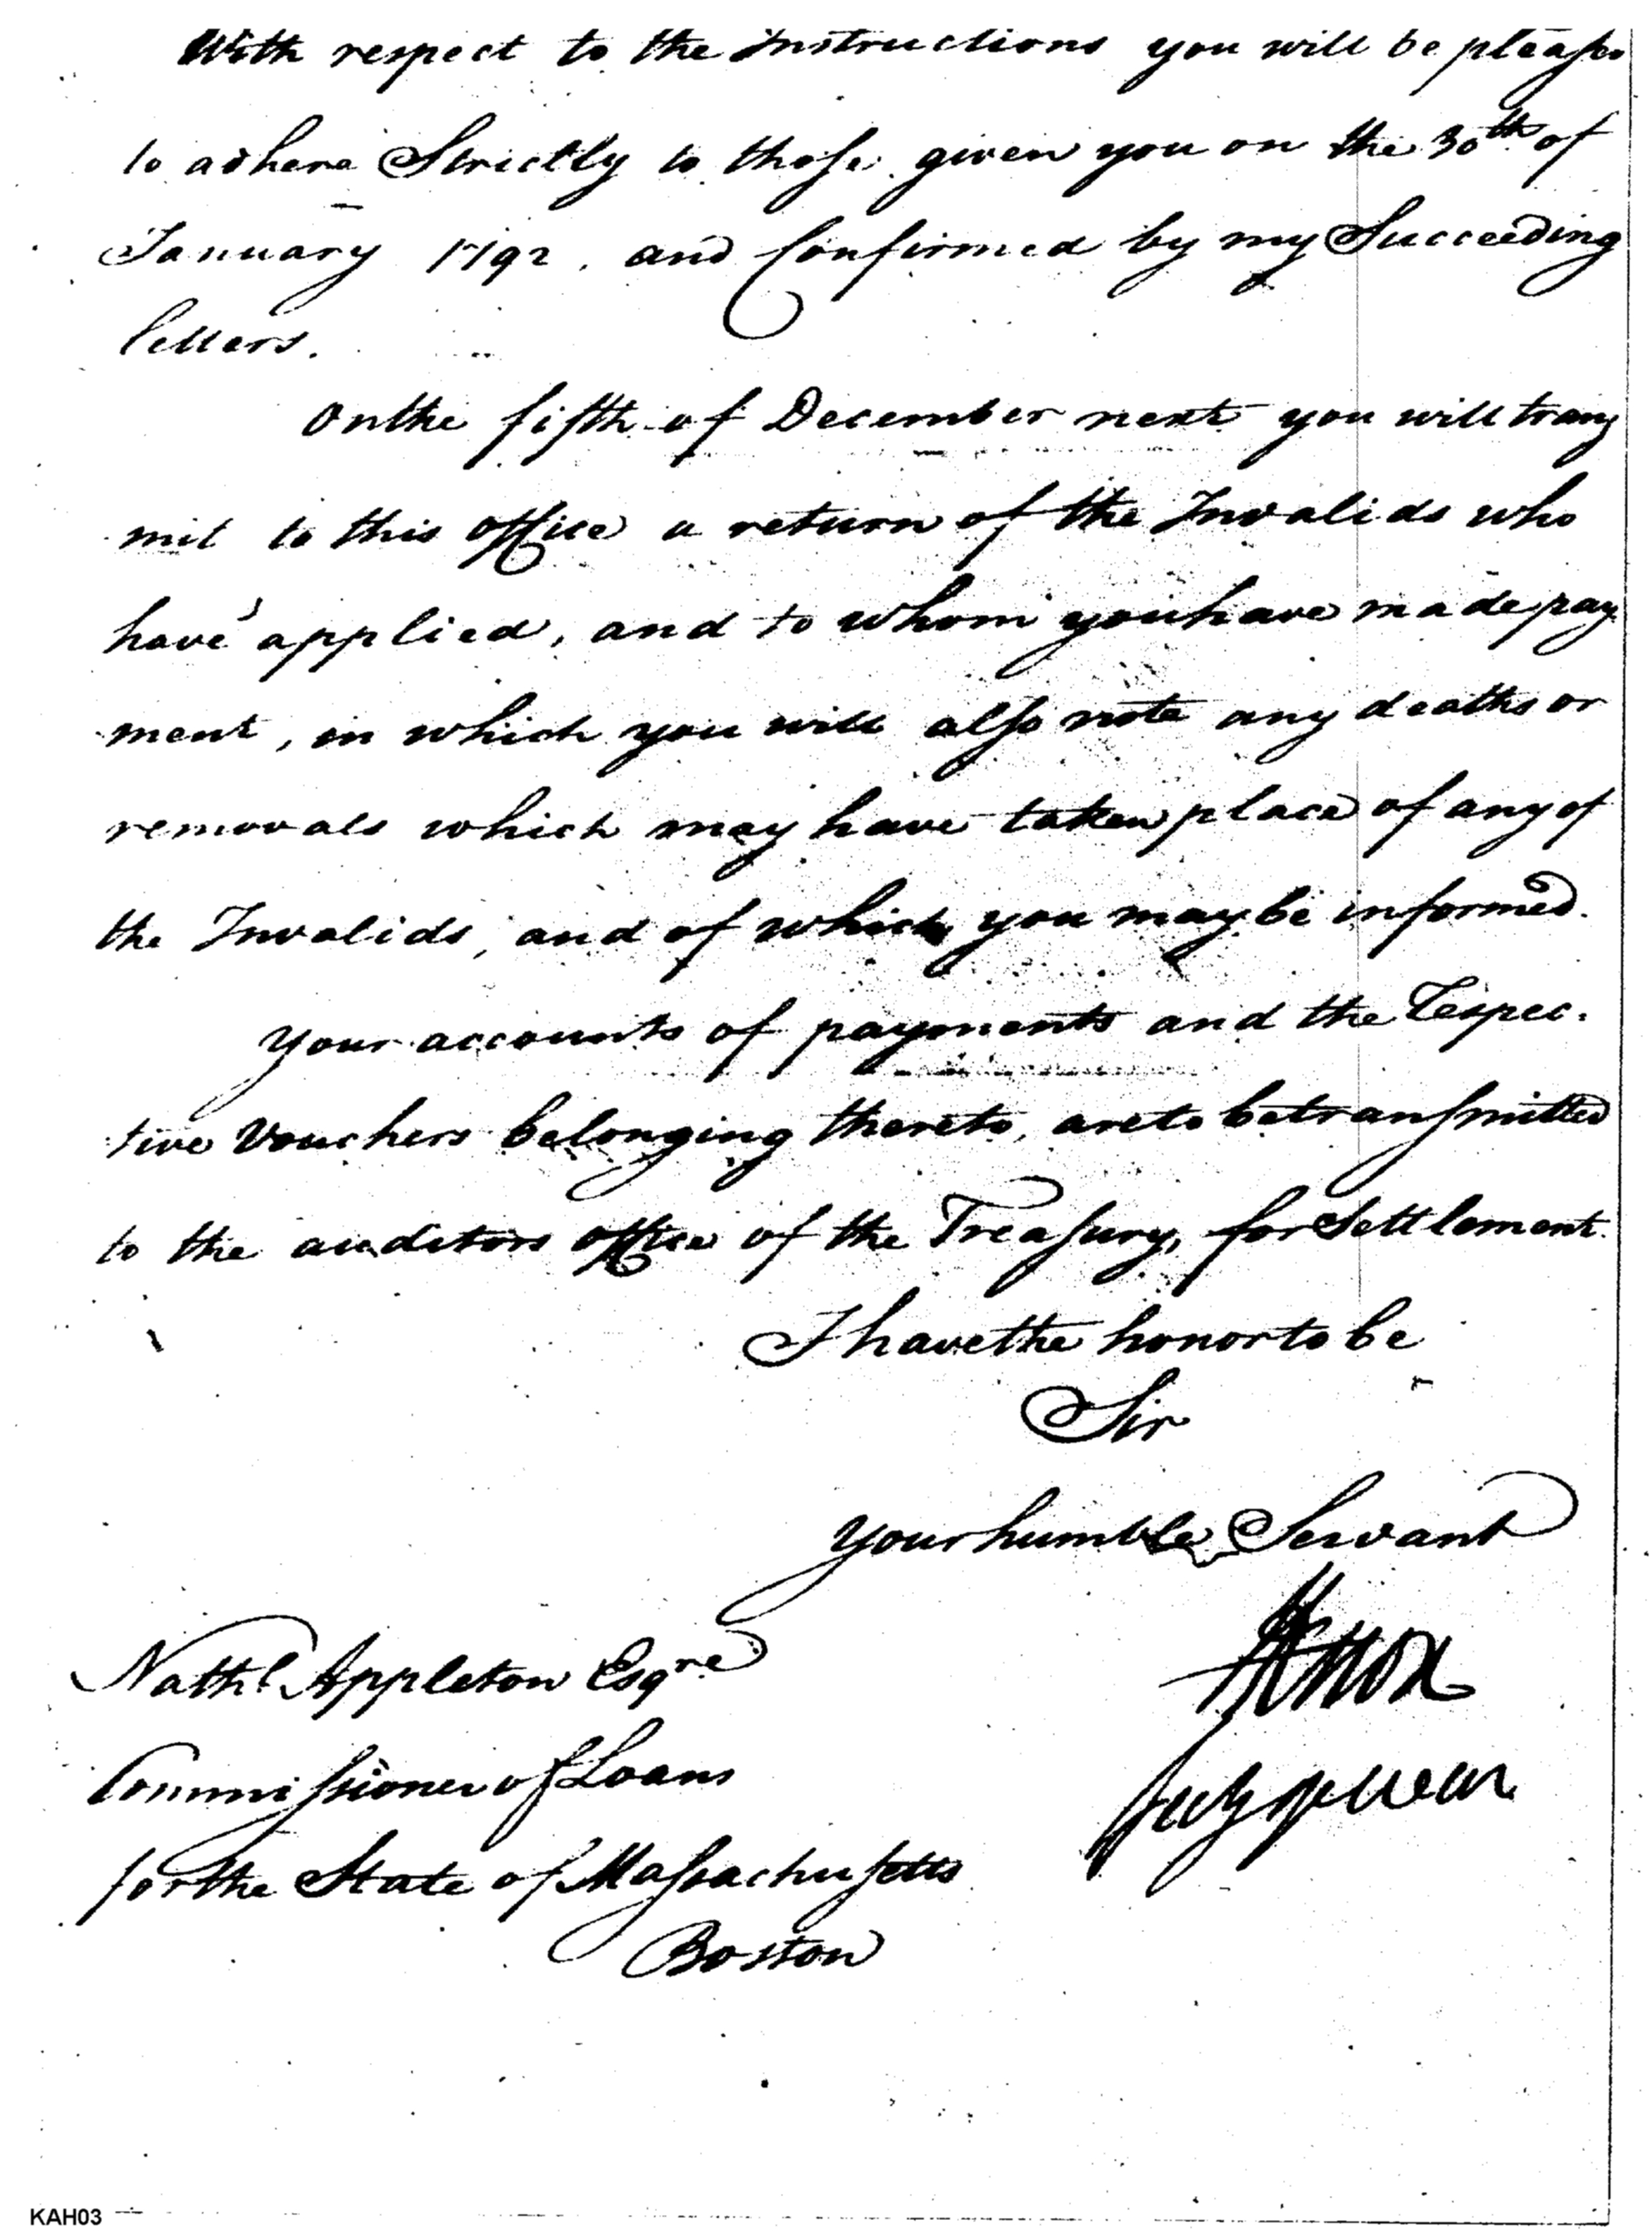 With respect to the instructions you will be pleased
to adhere Strictly to those given you on the 30th of
January 1792. and Confirmed by my Succeeding
letters.
On the fifth of December next you will trans
mit to this office a return of the Invalids who
have applied, and to whom you have made pay
ment, in which you will also note any deaths or
removals which may have taken place of any of
the Invalids, and of which you may be informed.
Your accounts of payments and the respec-
tive Vouchers belonging thereto, are to be transmitted
to the auditors office of the Treasury, for Settlement.
I have the honor to be
Sir
Your humble Servant
HKnox
Secy of War
Nathl. Appleton Esqre
Commissioner of Loans
for the State of Massachusetts
Boston
KAH03